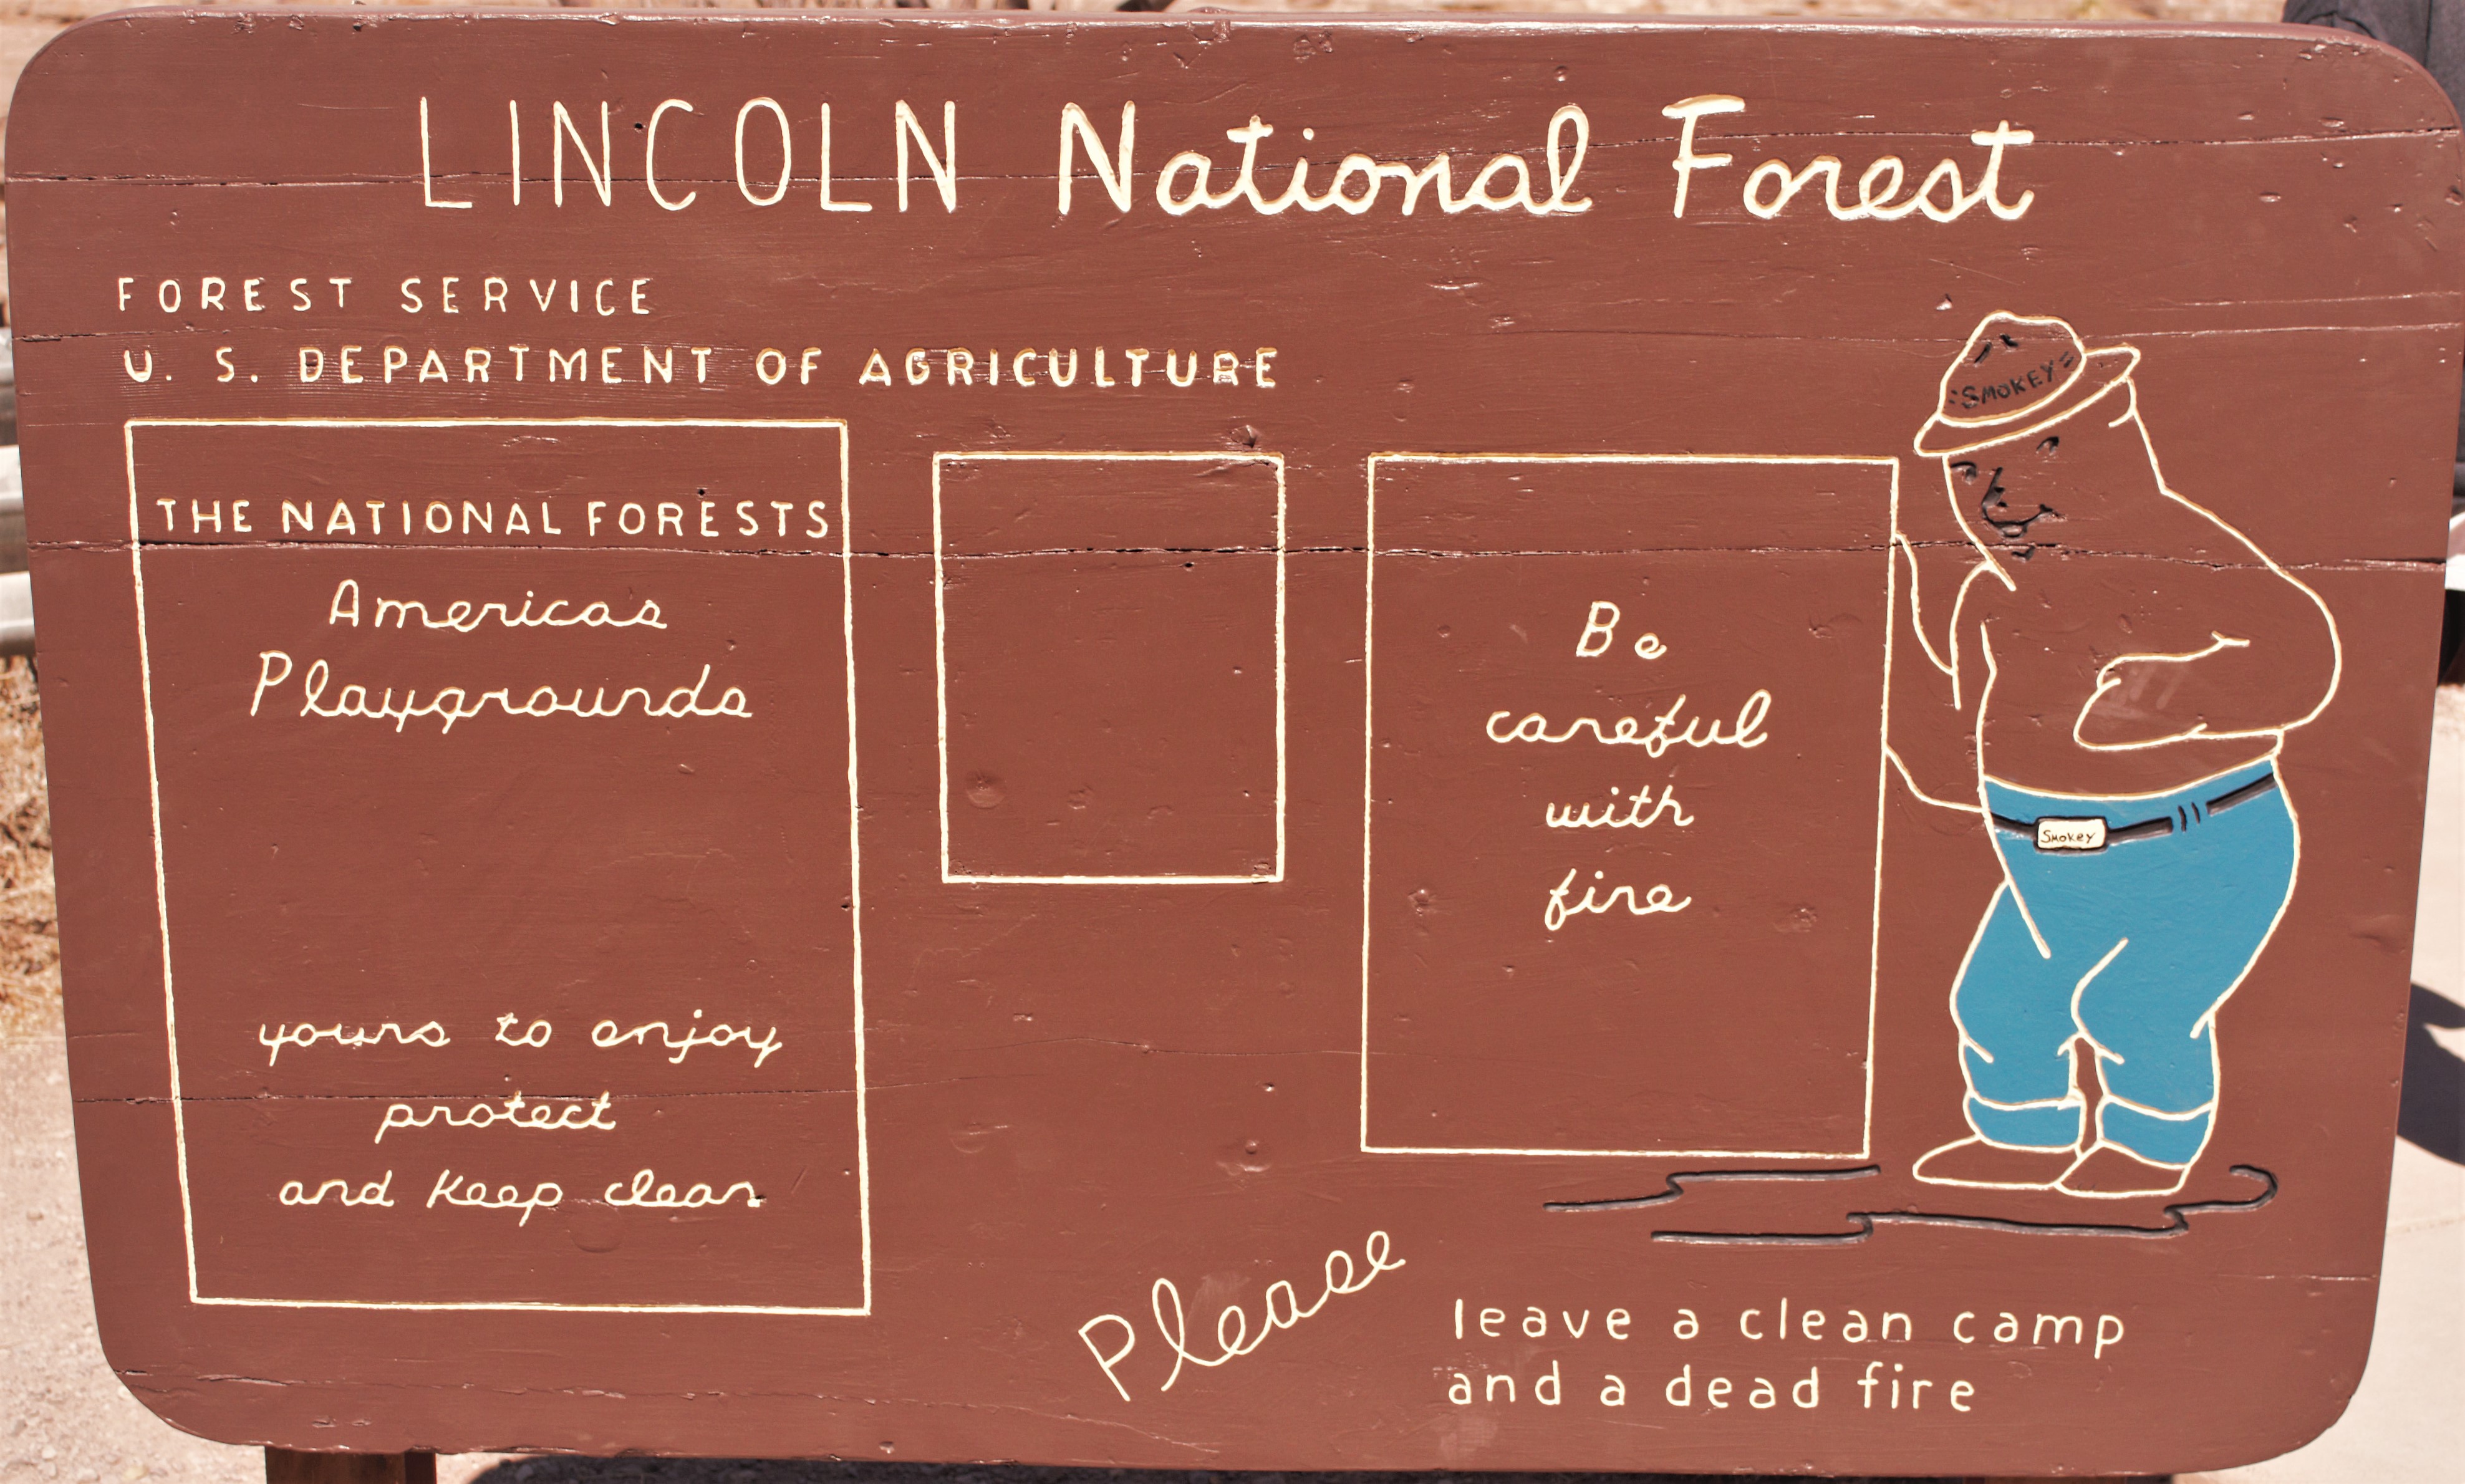 LINCOLN National Forest
FOREST SERVICE
U. S. DEPARTMENT OF AGRICULTURE
THE NATIONAL FORESTS
Americas
Playgrounds
yours to enjoy
protect
and keep clean
Be
careful
with
fire
SMOKEY
Smokey
Please
leave a clean camp
and a dead fire